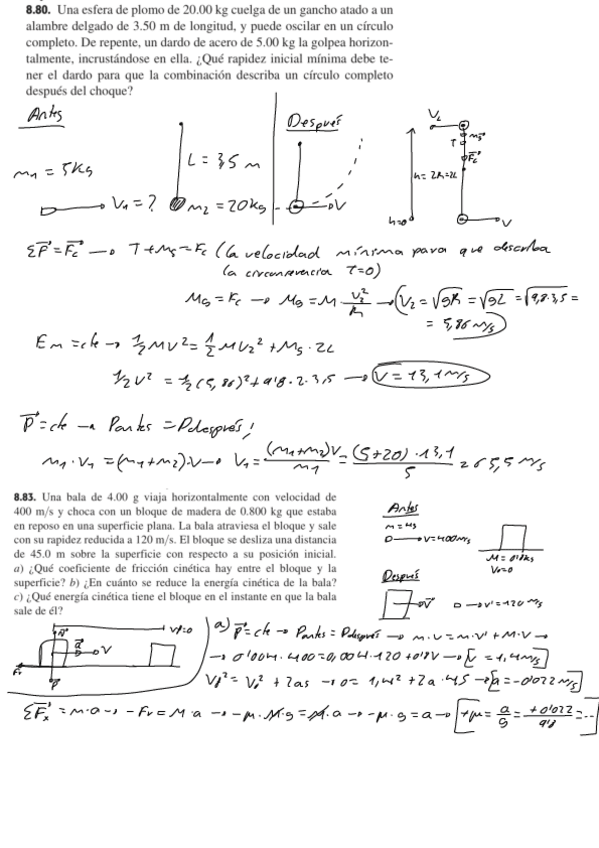 8.80. Una esfera de plomo de 20.00 kg cuelga de un gancho atado a un
alambre delgado de 3.50 m de longitud, y puede oscilar en un círculo
completo. De repente, un dardo de acero de 5.00 kg la golpea horizon-
talmente, incrustándose en ella. ¿Qué rapidez inicial mínima debe te-
ner el dardo para que la combinación describa un círculo completo
después del choque?
Antes
Después
m₁ = 5Kg
L = 3,5 m
V₁ = ?
m₂ = 20kg
V
V₂
T
Mg
Fc
h = 2R = 2L
h=0
V
ΣF = Fc → T + Mg = Fc (La velocidad mínima para que describa
la circunferencia T=0)
Mg = Fc → Mg = M V₂²/R → V₂ = √gR = √gL = √9,8·3,5 =
= 5,86 m/s
Em = cte → 1/2 MV² = 1/2 MV₂² + Mg · 2L
1/2 V² = 1/2 (5,86)² + 9'8 · 2 · 3,5 → V = 13,1 m/s
P = cte → Pantes = Pdespués /
m₁ · V₁ = (m₁+m₂)·V → V₁ = (m₁+m₂)V/m₁ = (5+20)·13,1/5 = 65,5 m/s
8.83. Una bala de 4.00 g viaja horizontalmente con velocidad de
400 m/s y choca con un bloque de madera de 0.800 kg que estaba
en reposo en una superficie plana. La bala atraviesa el bloque y sale
con su rapidez reducida a 120 m/s. El bloque se desliza una distancia
de 45.0 m sobre la superficie con respecto a su posición inicial.
a) ¿Qué coeficiente de fricción cinética hay entre el bloque y la
superficie? b) ¿En cuánto se reduce la energía cinética de la bala?
c) ¿Qué energía cinética tiene el bloque en el instante en que la bala
sale de él?
Antes
V=400m/s
M = 0'8kg
V₀=0
Después
V
V'=120 m/s
N
a
V
Vf=0
Fr
P
a) P = cte → Pantes = Pdespués → m·V = m·V' + M·V →
→ 0'004·400 = 0,004·120 + 0'8V → V = 1,4m/s
Vf² = V₀² + 2as → 0 = 1,4² + 2a·45 → a = -0'022 m/s
ΣFx = m·a → -Fr = M·a → -μ·M·g = M·a → -μ·g = a → +μ = a/g = +0'022/9'8 = ...